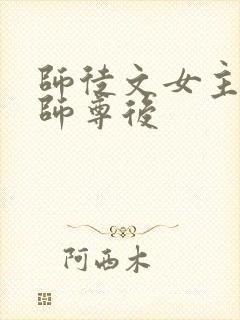 師徒文女主
師尊後
阿西木